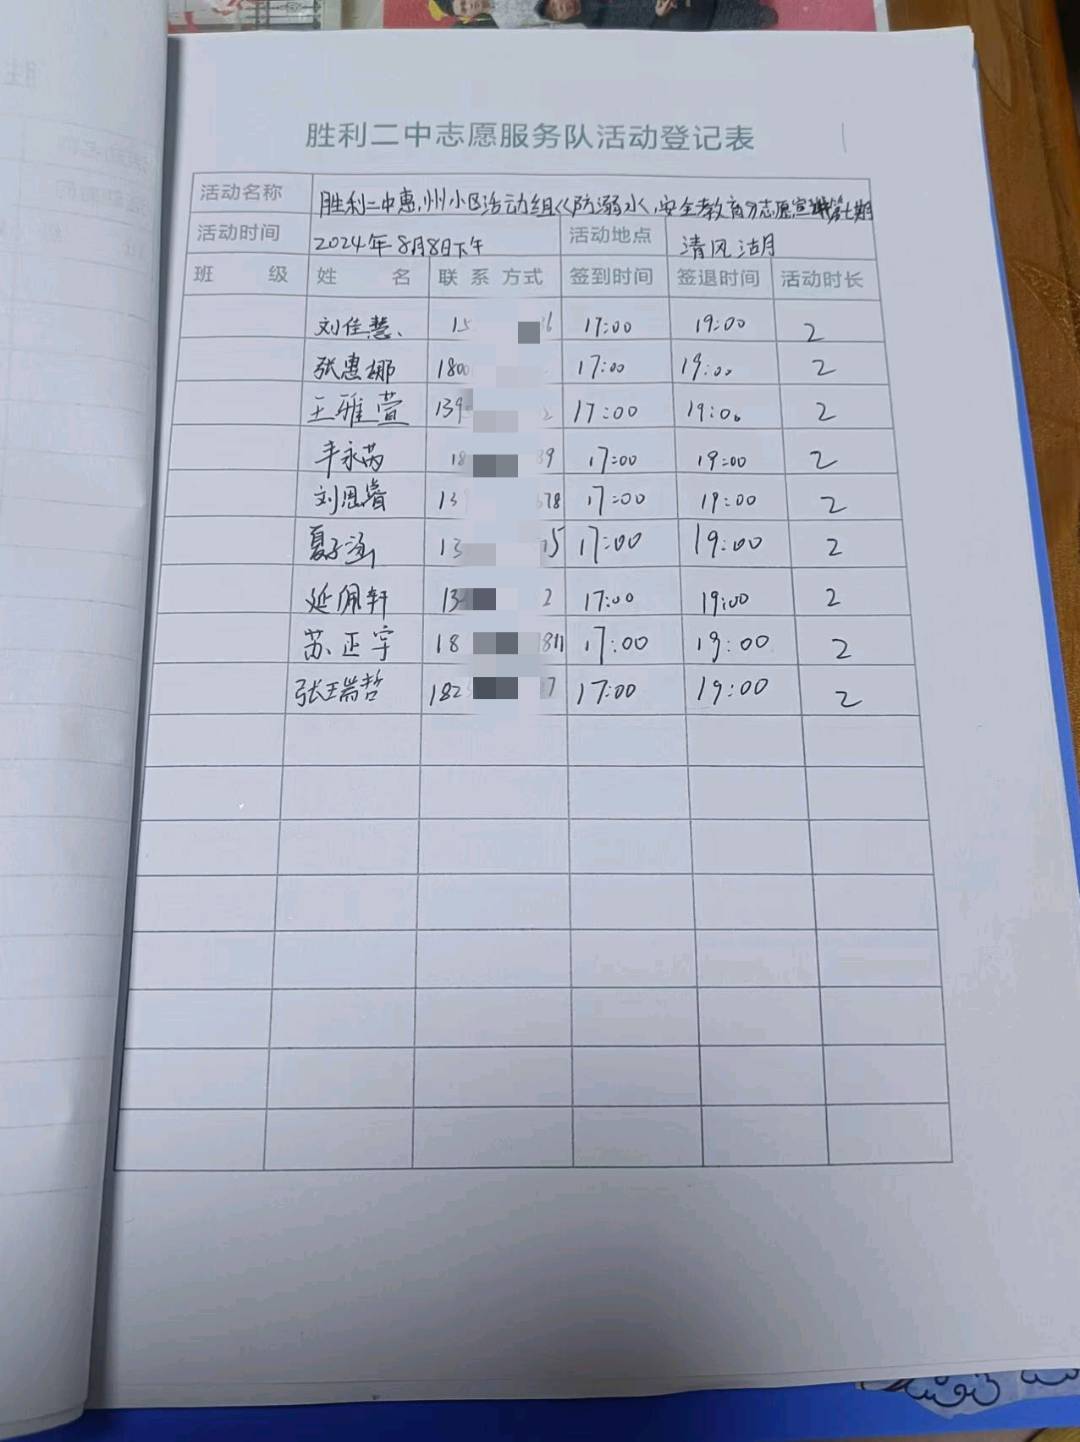 胜利二中志愿服务队活动登记表
活动名称 胜利二中惠州小区活动组《防溺水、安全教育》志愿宣讲第七期
活动时间 2024年8月8日下午 活动地点 清风湖
班 级 姓 名 联系方式 签到时间 签退时间 活动时长
刘佳慧、 15 6 17:00 19:00 2
张惠娜 180 17:00 19:00 2
王雅萱 139 2 17:00 19:00 2
丰永芮 18 39 17:00 19:00 2
刘恩睿 13 678 17:00 19:00 2
夏子涵 13 15 17:00 19:00 2
延佩轩 13 2 17:00 19:00 2
苏正宇 18 811 17:00 19:00 2
张瑞哲 182 7 17:00 19:00 2